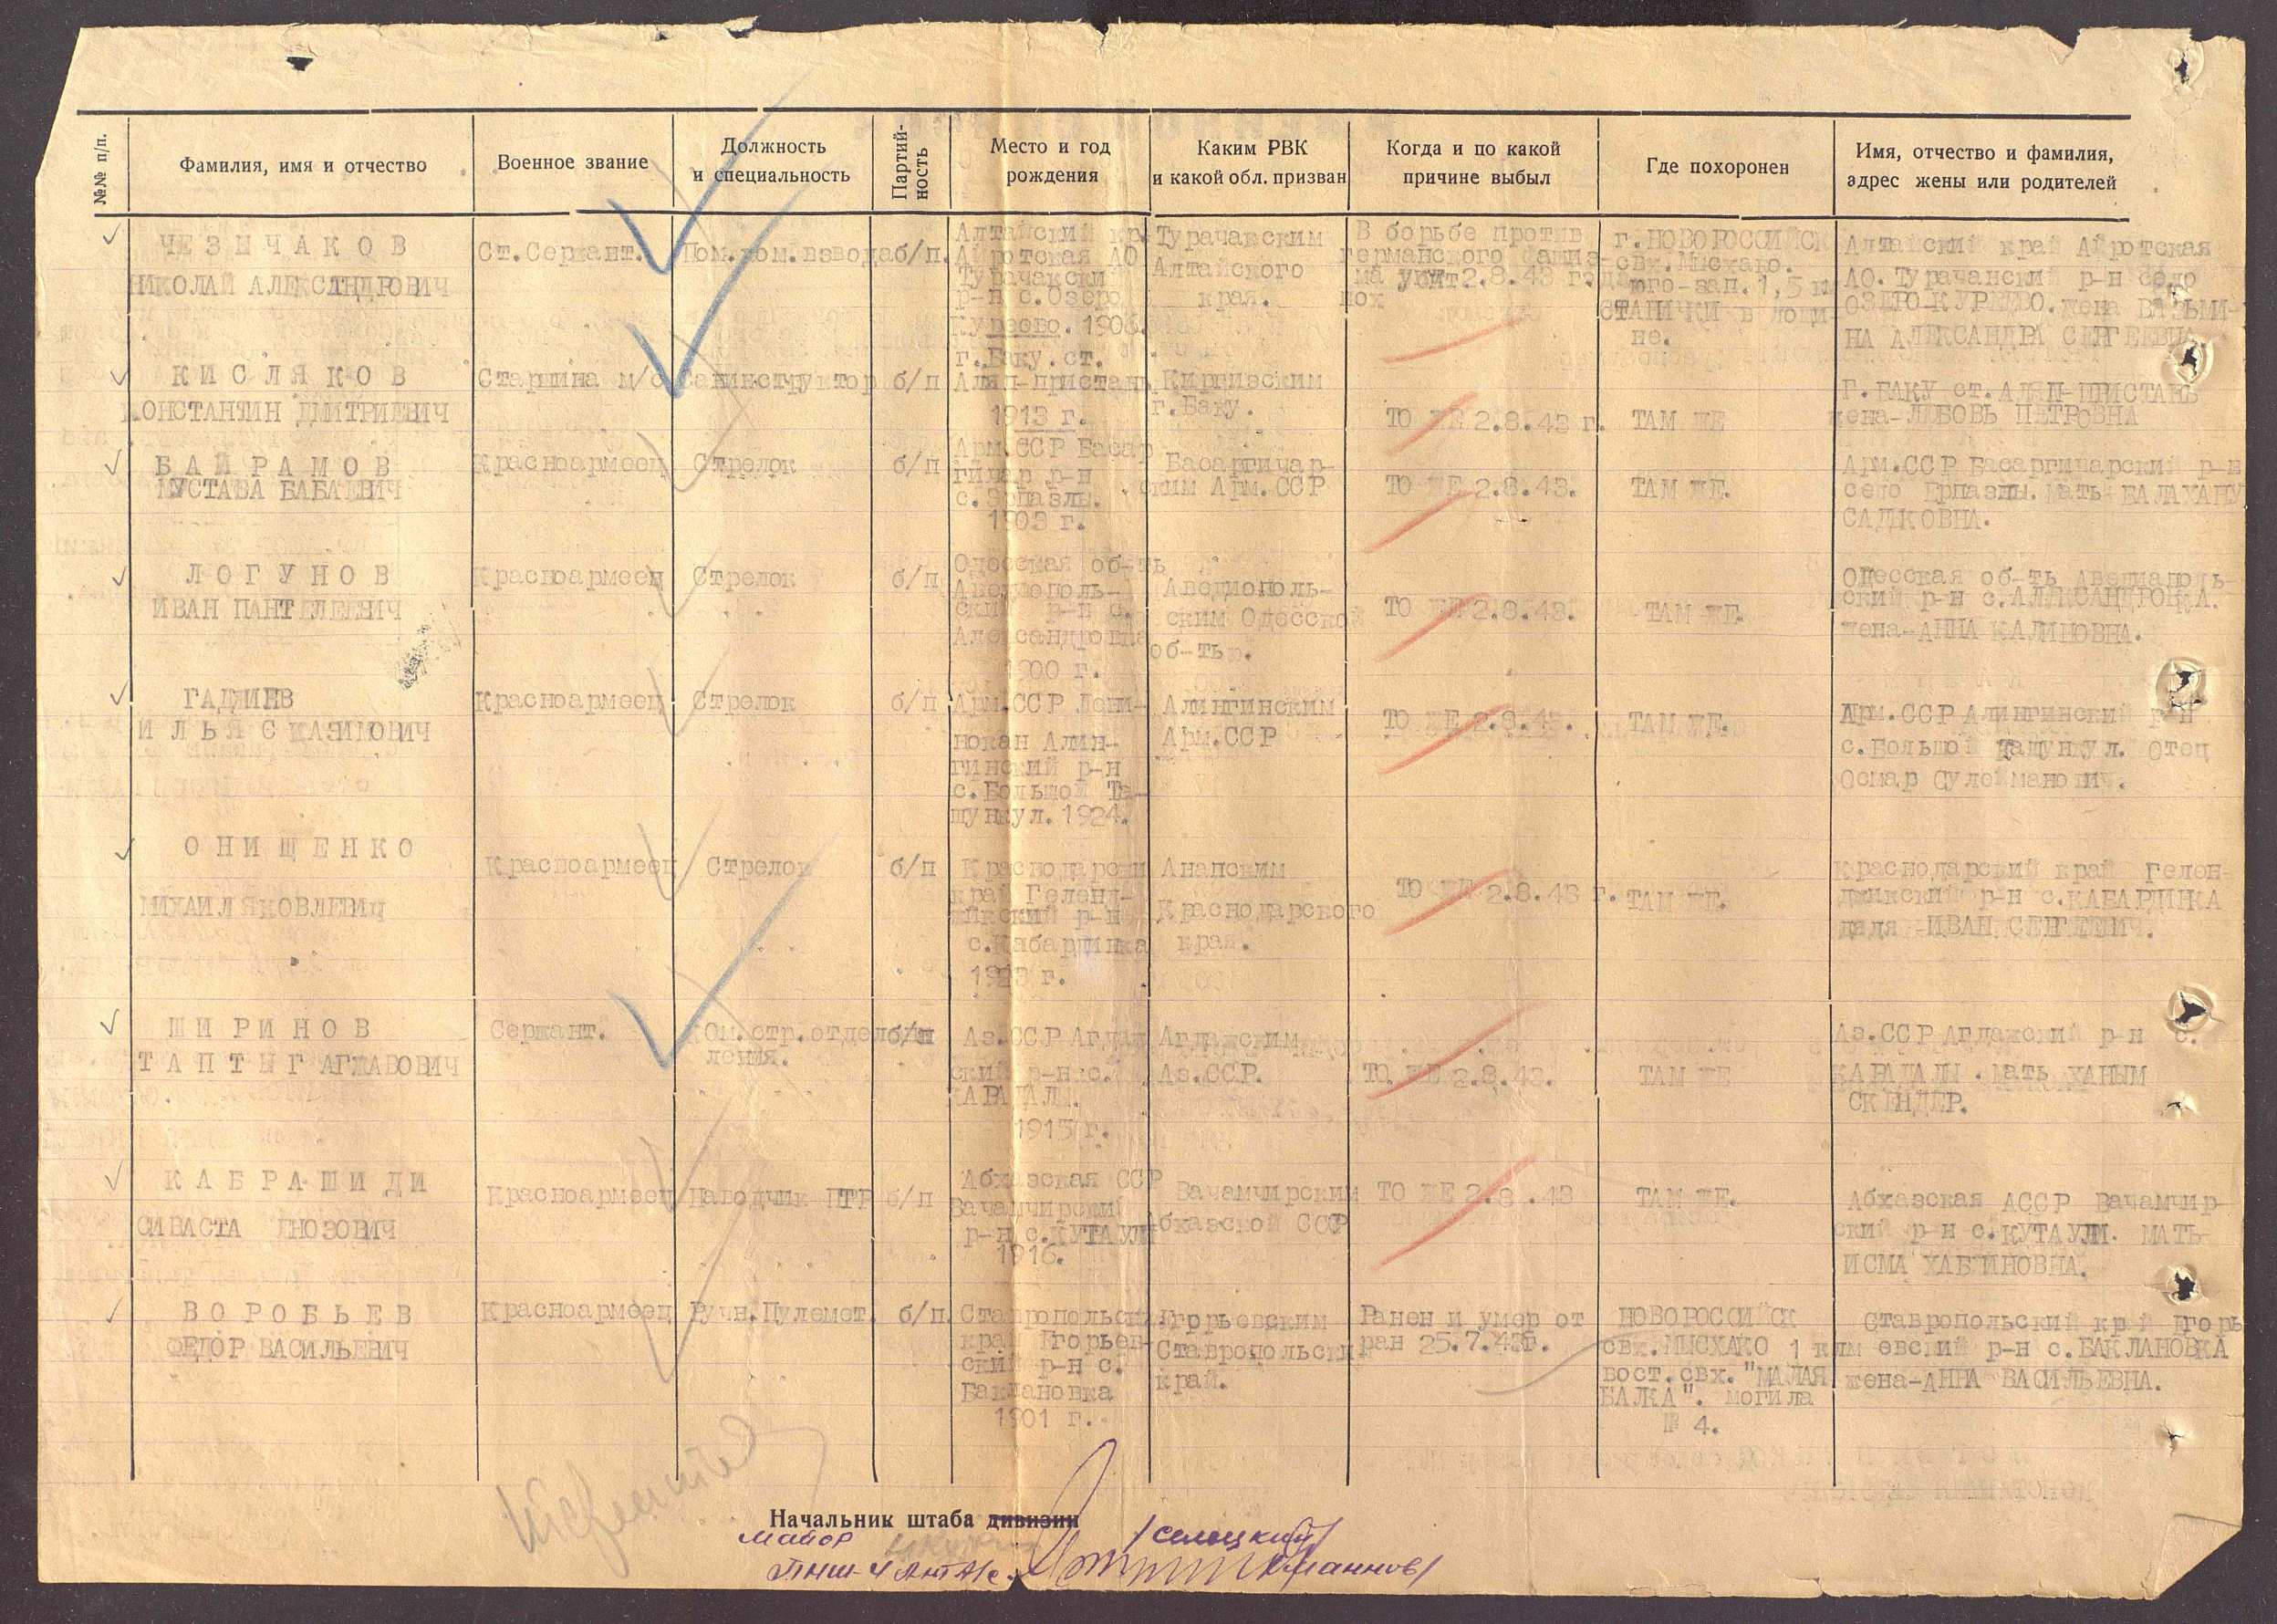 №№ п/п.
Фамилия, имя и отчество
Военное звание
Должность
и специальность
Партий-
ность
Место и год
рождения
Каким РВК
и какой обл. призван
Когда и по какой
причине выбыл
Где похоронен
Имя, отчество и фамилия,
адрес жены или родителей
ЧЕЗЫЧАКОВ
НИКОЛАЙ АЛЕКСАНДРОВИЧ
Ст. Сержант.
Пом.ком.взвода
б/п.
Алтайский кр.
Айротская АО
Турачакски
р-н с.Озеро
Куреево. 1906.
Турачакским
Алтайского
края.
В борьбе против
германского фашиз-
ма убит 2.8.43 года
г.НОВОРОССИЙСК
свх.Мысхако.
юго-зап. 1,5 км
СТАНИЧКИ в лощи-
не.
Алтайский край Айротская
АО. Турачанский р-н село
ОЗЕРО-КУРЕЕВО. жена
НА АЛЕКСАНДРА СЕРГЕЕВНА.
КИСЛЯКОВ
КОНСТАНТИН ДМИТРИЕВИЧ
Старшина м/с
Санинструктор
б/п
г.Баку.ст.
Алят-пристань
1913 г.
Киргизским
г.Баку.
ТО ЖЕ 2.8.43 г.
ТАМ ЖЕ
Г.БАКУ ст.АЛЯТ-ПРИСТАНЬ
жена-ЛЮБОВЬ ПЕТРОВНА
БАЙРАМОВ
МУСТАФА БАБАЕВИЧ
Красноармеец
Стрелок
б/п
Арм.ССР Басар
гичар р-н
с.
1903 г.
Басаргичар-
ским Арм.ССР
ТО ЖЕ 2.8.43.
ТАМ ЖЕ.
Арм.ССР Басаргичарский р-н
село Ерпазлы. Мать БАЛАХАНУ
САДКОВНА.
ЛОГУНОВ
ИВАН ПАНТЕЛЕЕВИЧ
Красноармеец
Стрелок
б/п
Одесская об-ть
Аведиополь-
ский р-н с.
Александровка
1900 г.
Аведиополь-
ским Одесской
об-тью.
ТО ЖЕ 2.8.43.
ТАМ ЖЕ.
Одесская об-ть Аведиаполь-
ский р-н с.АЛЕКСАНДРОВКА.
жена-АННА КАЛИНОВНА.
ГАДЖИЕВ
ИЛЬЯС
Красноармеец
Стрелок
б/п
Арм.ССР Лени-
нокан Алин-
гинский р-н
с.Большой Та-
шункул. 1924.
Алингинским
Арм.ССР
ТО ЖЕ 2.8.43.
ТАМ ЖЕ.
Арм.ССР Алингинский р-н
с.Большой Ташункул. Отец
Осмар Сулейманович.
ОНИЩЕНКО
МИХАИЛ ЯКОВЛЕВИЧ
Красноармеец
Стрелок
б/п
Краснодарски
край Геленд-
жикский р-н
с.Кабардинка
1923 г.
Анапским
Краснодарского
край.
ТО ЖЕ 2.8.43 г.
ТАМ ЖЕ.
Краснодарский край Гелен-
джикский р-н с.КАБАРДИНКА
дядя -ИВАН СЕРГЕЕВИЧ.
ШИРИНОВ
ТАПТЫГ
Сержант.
Ком.стр.отде-
ления.
б/п
Аз.ССР Агдам
ский р-н с.
КАРАДАЛЫ.
1915 г.
Агдамским
Аз.ССР.
ТО ЖЕ 2.8.43.
ТАМ ЖЕ
Аз.ССР Агдамский р-н с.
КАРАДАЛЫ. мать ХАНЫМ
СКЕНДЕР.
КАБРАШИДИ
СИВАСТА ЕНОЗОВИЧ
Красноармеец
Наводчик ПТР
б/п
Абхазская ССР
Вачамчирский
р-н с.КУТАУЛИ
1916.
Вачамчирским
Абхазской ССР
ТО ЖЕ 2.8.43
ТАМ ЖЕ.
Абхазская АССР Вачамчир-
ский р-н с.КУТАУЛИ. МАТЬ-
ИСМА ХАБИНОВНА.
ВОРОБЬЕВ
ФЕДОР ВАСИЛЬЕВИЧ
Красноармеец
Ручн.Пулемет.
б/п
Ставропольск
край Егорьев-
ский р-н с.
Баклановка
1901 г.
Егорьевским
Ставропольски
край.
Ранен и умер от
ран 25.7.43г.
НОВОРОССИЙСК
свх.МЫСХАКО 1 клм
вост.свх."МАЛАЯ
БАЛКА". могила
№ 4.
Ставропольский край Егорь
евский р-н с.БАКЛАНОВКА
жена-АННА ВАСИЛЬЕВНА.
Начальник штаба дивизии
майор
/Селецкий/
ПНШ-4